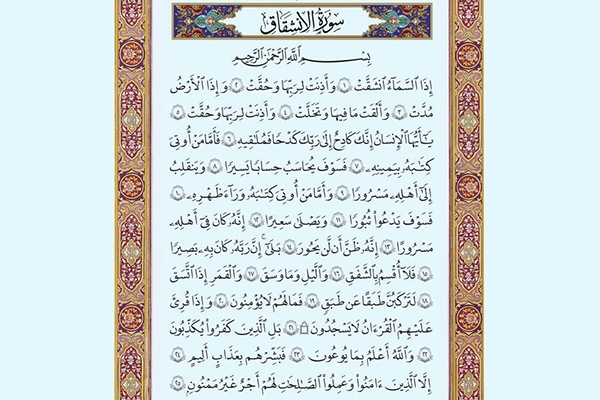 سُورَةُ الِانشِقَاقِ
بِسْمِ اللَّهِ الرَّحْمَٰنِ الرَّحِيمِ
إِذَا ٱلسَّمَآءُ ٱنشَقَّتۡ ١ وَأَذِنَتۡ لِرَبِّهَا وَحُقَّتۡ ٢ وَإِذَا ٱلۡأَرۡضُ
مُدَّتۡ ٣ وَأَلۡقَتۡ مَا فِيهَا وَتَخَلَّتۡ ٤ وَأَذِنَتۡ لِرَبِّهَا وَحُقَّتۡ ٥
يَـٰٓأَيُّهَا ٱلۡإِنسَـٰنُ إِنَّكَ كَادِحٌ إِلَىٰ رَبِّكَ كَدۡحًا فَمُلَـٰقِيهِ ٦ فَأَمَّا مَنۡ أُوتِيَ
كِتَـٰبَهُۥ بِيَمِينِهِۦ ٧ فَسَوۡفَ يُحَاسَبُ حِسَابًا يَسِيرًا ٨ وَيَنقَلِبُ
إِلَىٰٓ أَهۡلِهِۦ مَسۡرُورًا ٩ وَأَمَّا مَنۡ أُوتِيَ كِتَـٰبَهُۥ وَرَآءَ ظَهۡرِهِۦ ١٠
فَسَوۡفَ يَدۡعُواْ ثُبُورًا ١١ وَيَصۡلَىٰ سَعِيرًا ١٢ إِنَّهُۥ كَانَ فِيٓ أَهۡلِهِۦ
مَسۡرُورًا ١٣ إِنَّهُۥ ظَنَّ أَن لَّن يَحُورَ ١٤ بَلَىٰٓۚ إِنَّ رَبَّهُۥ كَانَ بِهِۦ بَصِيرًا
١٥ فَلَآ أُقۡسِمُ بِٱلشَّفَقِ ١٦ وَٱلَّيۡلِ وَمَا وَسَقَ ١٧ وَٱلۡقَمَرِ إِذَا ٱتَّسَقَ
١٨ لَتَرۡكَبُنَّ طَبَقًا عَن طَبَقٖ ١٩ فَمَا لَهُمۡ لَا يُؤۡمِنُونَ ٢٠ وَإِذَا قُرِئَ
عَلَيۡهِمُ ٱلۡقُرۡءَانُ لَا يَسۡجُدُونَۤ۩ ٢١ بَلِ ٱلَّذِينَ كَفَرُواْ يُكَذِّبُونَ
٢٢ وَٱللَّهُ أَعۡلَمُ بِمَا يُوعُونَ ٢٣ فَبَشِّرۡهُم بِعَذَابٍ أَلِيمٍ ٢٤
إِلَّا ٱلَّذِينَ ءَامَنُواْ وَعَمِلُواْ ٱلصَّـٰلِحَـٰتِ لَهُمۡ أَجۡرٌ غَيۡرُ مَمۡنُونِۭ ٢٥